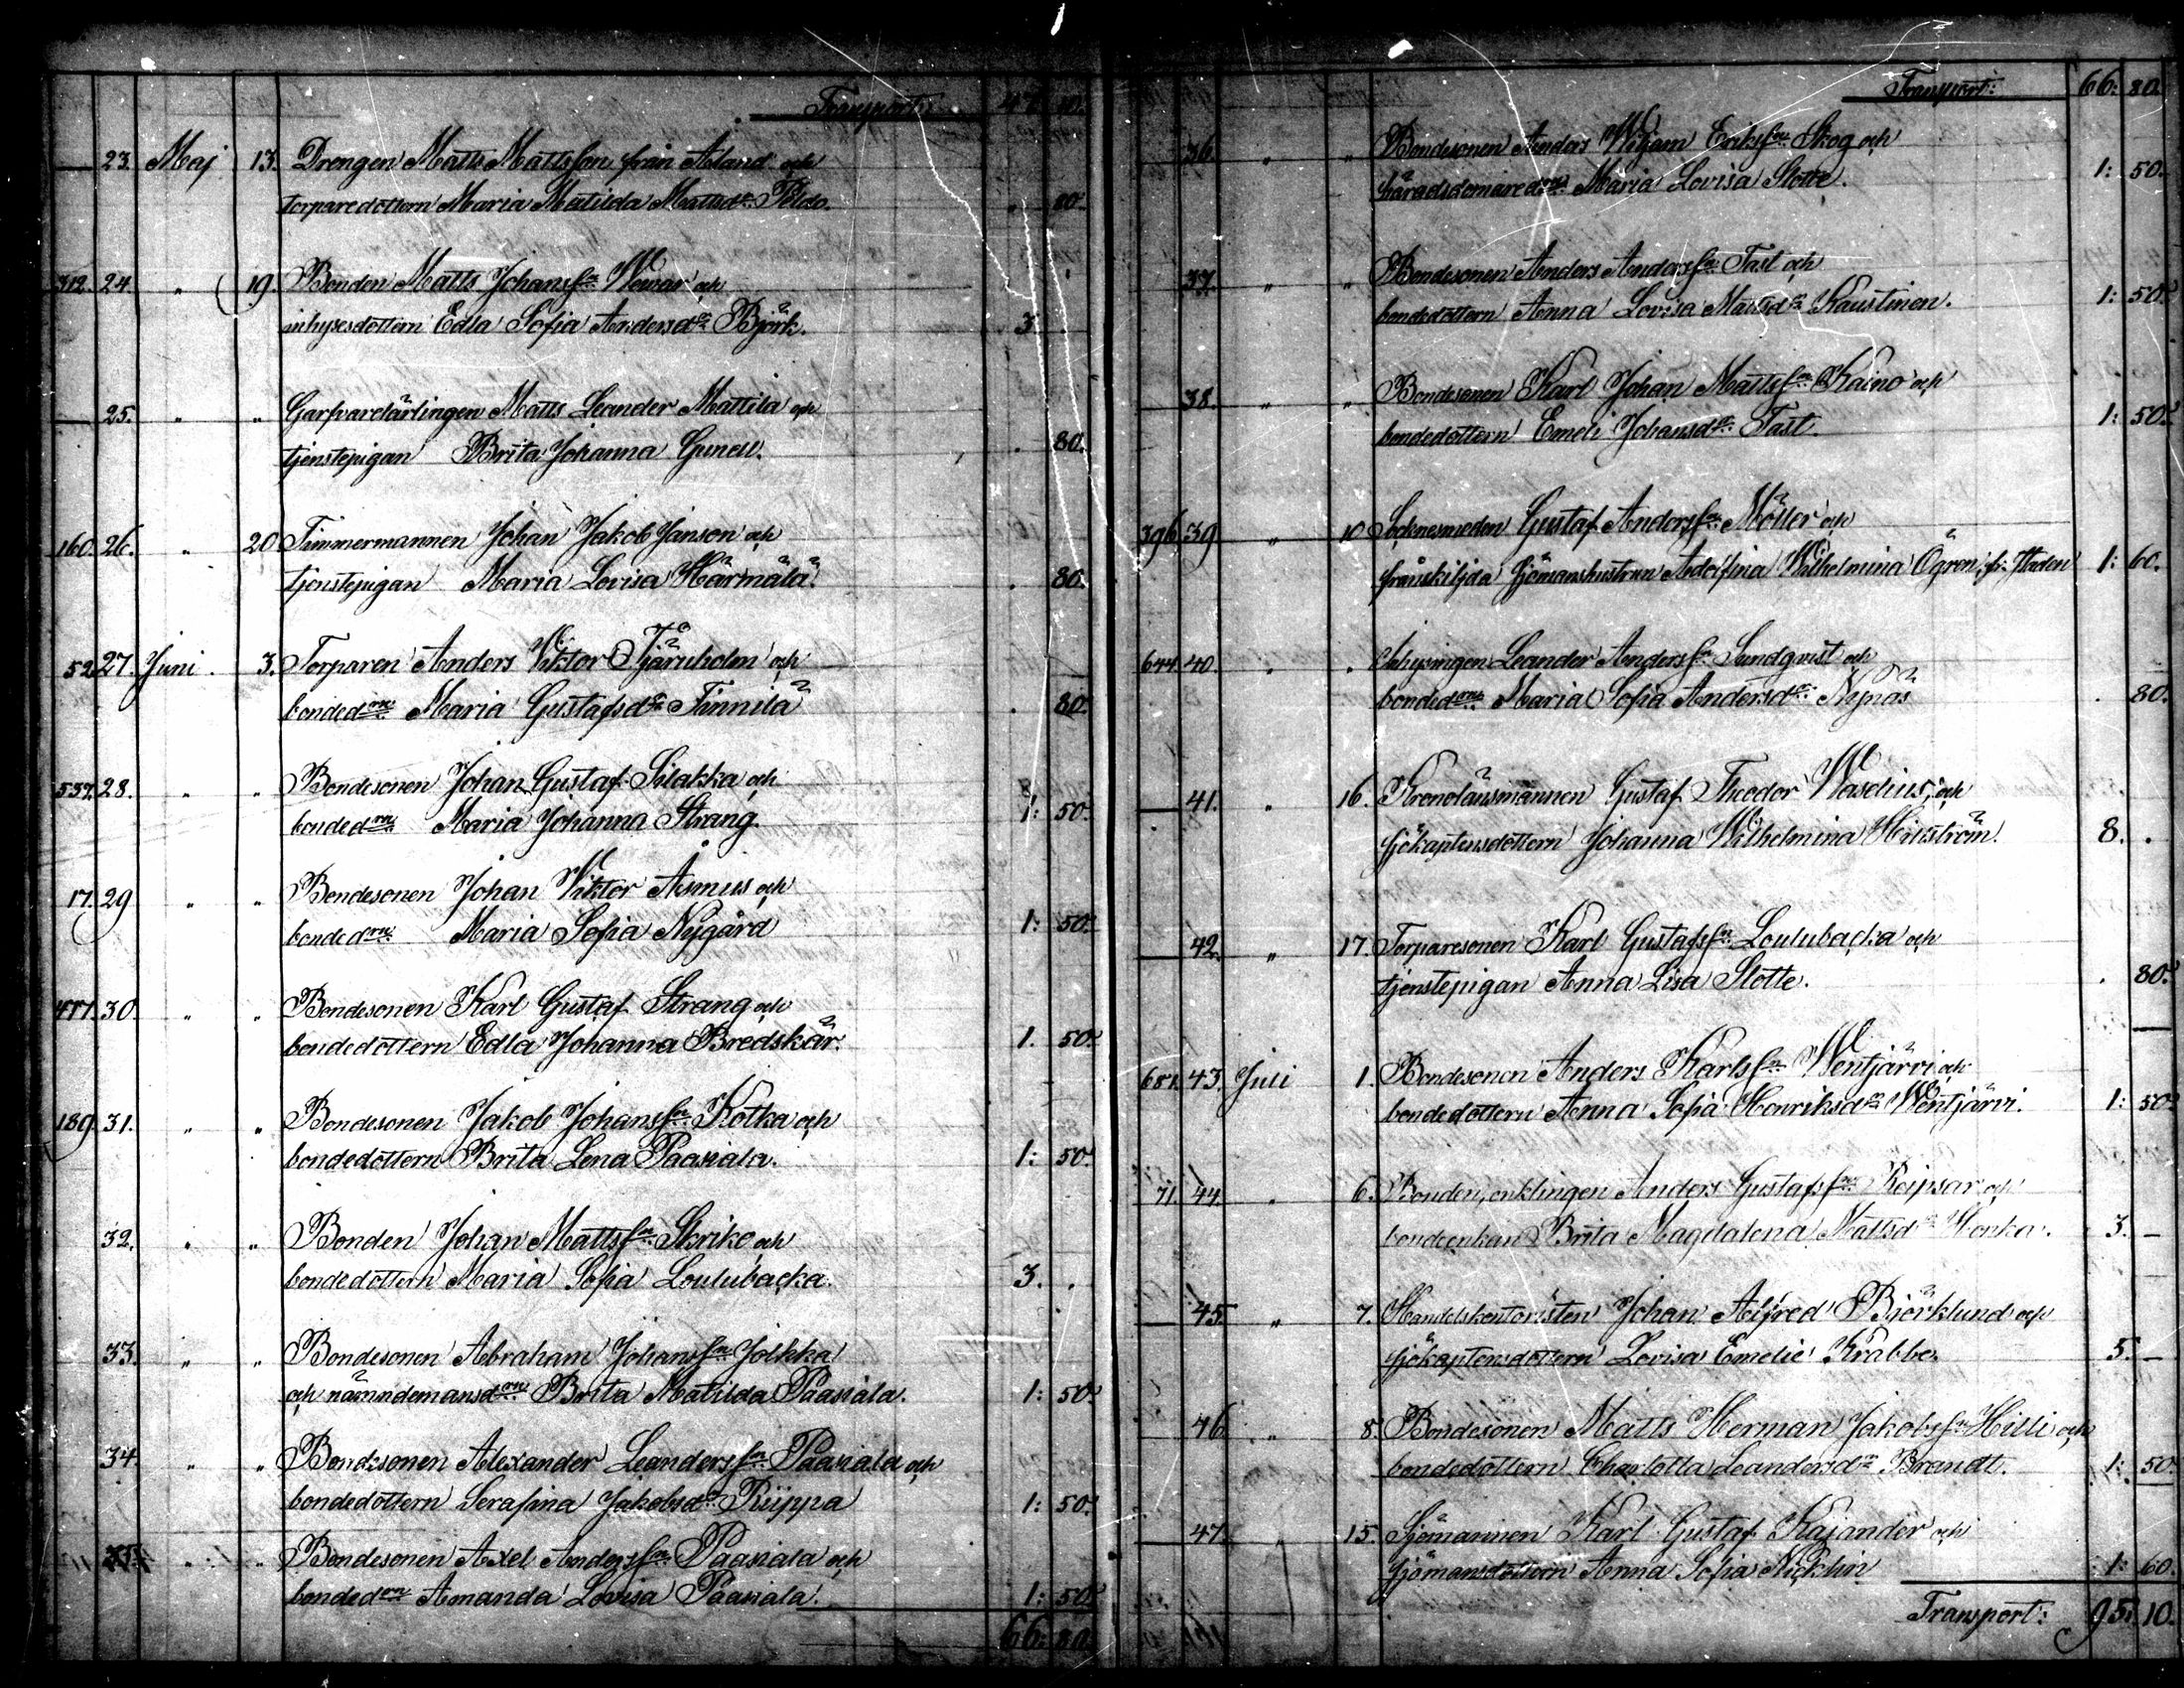 Transport: 47. 10.
— 23. Maj 13. Drengen Matts Mattsson från Aland och
torparedottern Maria Matilda Mattsdr Peldo. . 80.
312. 24. " 19. Bonden Matts Johansson Wewar och
inhysesdottern Edla Sofia Andersdr Björk. 3
— 25. " " Garfvarelärlingen Matts Leander Mattila och
tjenstepigan Brita Johanna Gunell. . 80.
160. 26. " 20 Timmermannen Johan Jakob Janson och
tjenstepigan Maria Lovisa Härmälä . 80.
52. 27. Juni 3. Torparen Anders Viktor Tjäruholm och
bondedrn Maria Gustafsdr Finnilä . 80.
537. 28. " " Bondesonen Johan Gustaf Silakka och
bondedrn Maria Johanna Strang 1: 50.
17. 29 " " Bondesonen Johan Viktor Asmus och
bondedrn Maria Sofia Nygård 1: 50.
477. 30. " " Bondesonen Karl Gustaf Strang och
bondedottern Edla Johanna Bredskär. 1. 50.
189. 31. " " Bondesonen Jakob Johansson Kotka och
bondedottern Brita Lena Paasiala. 1: 50.
32. " " Bonden Johan Mattsson Skrike och
bondedottern Maria Sofia Loulubacka. 3. .
33. " " Bondesonen Abraham Johansson Jolkka
och nämndemansdrn Brita Matilda Paasiala. 1: 50.
34. " " Bondesonen Alexander Leandersson Paasiala och
bondedottern Serafina Jakobsdr Riippa 1: 50.
35. " " Bondesonen Axel Andersson Paasiala och
bondedrn Amanda Lovisa Paasiala. 1: 50.
66: 80.
Transport: 66: 80.
36. " " Bondesonen Anders Wiljam Eriksson Skog och
häradsdomaredrn Maria Lovisa Slotte. 1: 50.
37. " " Bondesonen Anders Andersson Fast och
bondedottern Anna Lovisa Mattsdr Kaustinen. 1: 50.
38. " " Bondesonen Karl Johan Mattsson Kaino och
bondedottern Emeli Johansdr Fast. 1: 50.
396 39 " 10 Socknesmeden Gustaf Andersson Möller och
frånskiljda sjömanshustrun Adolfina Wilhelmina Ögren, fr. staden 1: 60.
644. 40. " " Inhysingen Leander Andersson Sundqvist och
bondedrn Maria Sofia Andersdr Nynäs . 80.
— 41. " 16. Kronolänsmannen Gustaf Theodor Waselius, och
sjökaptensdottern Johanna Wilhelmina Hinström. 8. .
— 42. " 17. Torparesonen Karl Gustafsson Loulubacka och
tjenstepigan Anna Lisa Slotte. . 80.
681. 43. Juli 1. Bondesonen Anders Karlsson Wentjärvi och
bondedottern Anna Sofia Henriksdr Wentjärvi. 1: 50.
71. 44. " 6. Bonden, enklingen Anders Gustafsson Reipsar och
bondeenkan Brita Magdalena Mattsd Honka. 3. —
— 45. " 7. Handelskontoristen Johan Alfred Björklund och
sjökaptensdottern Lovisa Emelie Krabbe. 5. —
46. " 8. Bondesonen Matts Herman Jakobsson Hilli och
bondedottern Charlotta Leandersdr Brandt. 1: 50
47. 15. Sjömannen Karl Gustaf Kajander och
sjömansdottern Anna Sofia Nicklin 1: 60.
Transport: 95. 10.